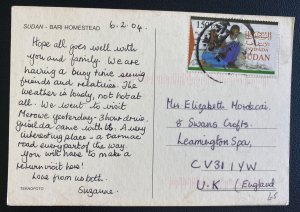 SUDAN - BARI HOMESTEAD
6.2.04.
Hope all goes well with
you and family. We are
having a busy time seeing
friends and relatives. The
weather is lovely, not hot at
all. We went to visit
Merowe yesterday - 3 hour drive.
Griselda came with us. A very
interesting place - a tarmac
road every part of the way.
You will have to make a
return visit here!
Love from us both.
Suzanne.
TEKNOFOTO
150
السودان
SUDAN
Mrs Elizabeth Mordecai
8 Swans Crofts.
Leamington Spa,
CV31 1YW
U.K (England